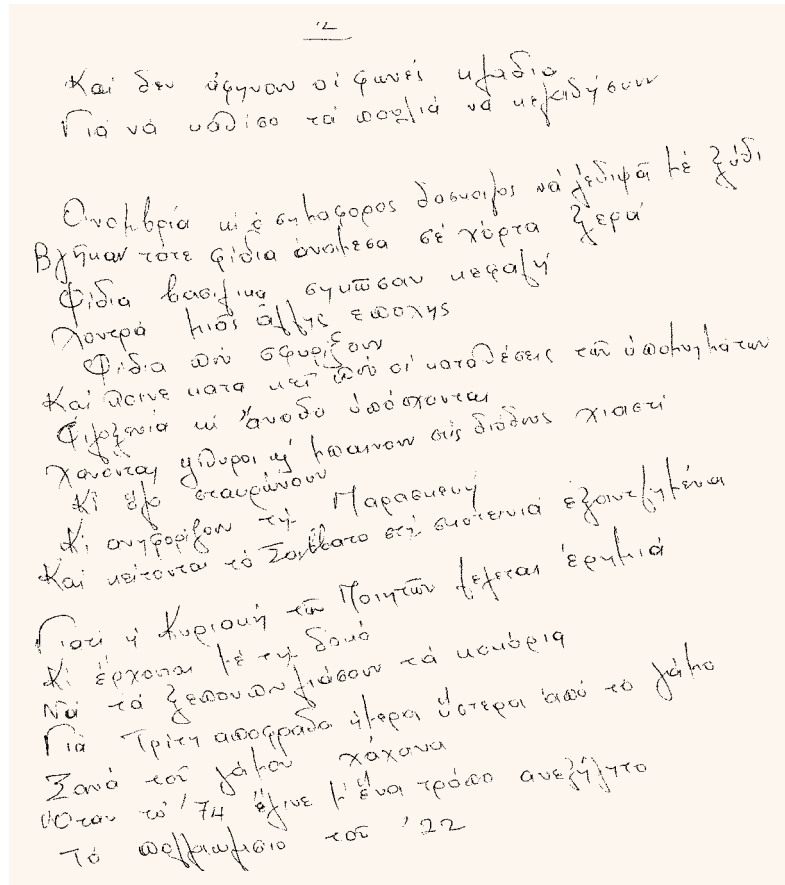 2
Καί δεν άφηνον οί φωνές κλαδιά
Γιά νά καθίσο τά πουλιά νά κελαδήσουν
Ονομβρία κι ό σημαφορος δόσκολος νά
Βγήκαν τοτε φίδια άνάμεσα σέ χόρτα ξερά
Φίδια βασιλικα σηκώσαν κεφαλή
Λοντρά μιάς άλλης εποχής
Φίδια πού σφυρίζουν
Καί κατα κεί πού οί καταθέσεις τών ύπομνημάτων
Φιλοξενία κι άνοδο ύπόσχονται
Χάνονται ψίθυροι κι μπαινουν στίς διόδους χιαστί
Κι σταυρώνουν
Κι ανηφορίζον τή Παρασκευή
Καί κείτονται τό Σαββατο στή σκοτεινιά έξαντλημένα
Γιατί ή Κυριακή τών Ποιητών λέγεται έρημιά
Κι έρχονται μέ τή δοκό
Νά τά ξεπουπουλιάσουν τά κοκόρια
Γιά Τρίτη αποφράδα ήμερα ύστερα άπό τό γάμο
Ξανά τού γάμου χάχανα
Όταν τό '74 έγινε μ' ένα τρόπο ανεξήγητο
Τό τού '22